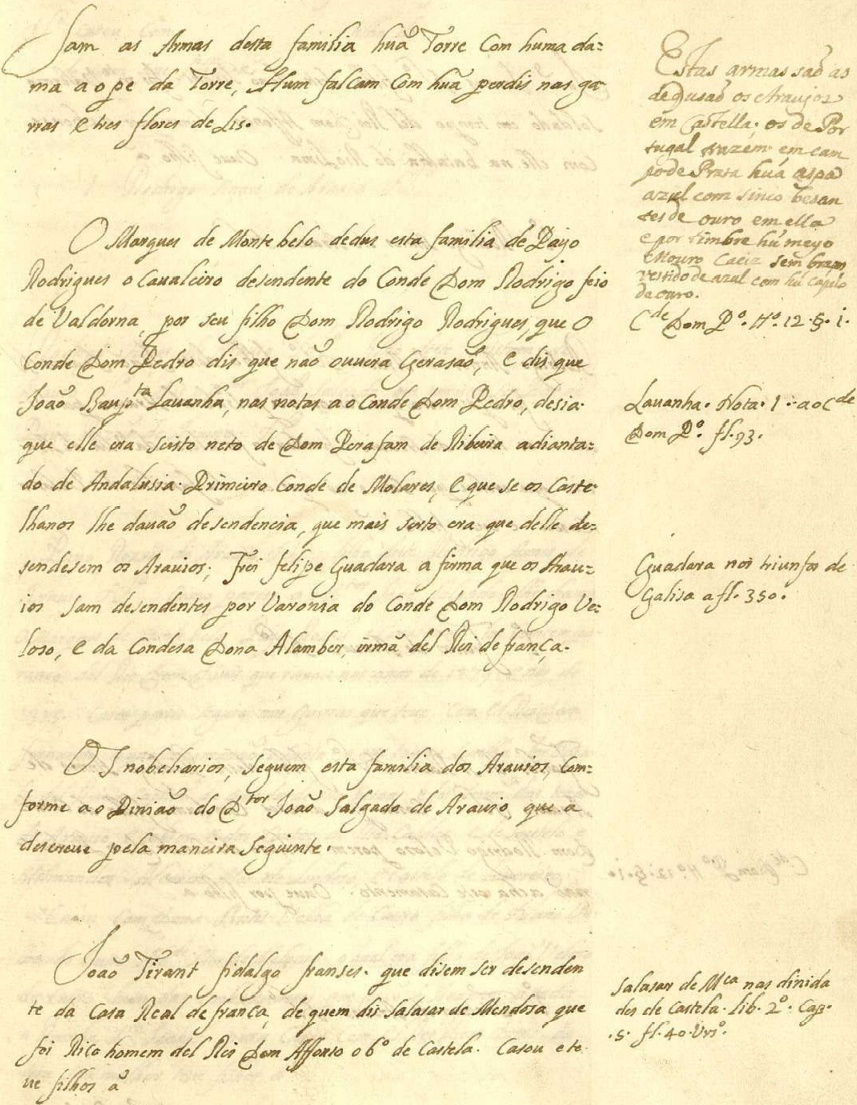 Sam as Armas desta familia huã Torre Com huma da=
ma a o pe da Torre, Hum falcam Com huã perdis nas ga-
rras E tres flores de Lis.
O Marques de Montebelo dedus esta familia de Payo
Rodrigues o Caualeiro desendente do Conde Dom Rodrigo feio
de Valdorna, por seu filho Dom Rodrigo Rodrigues, que O
Conde Dom Pedro dis que naõ ouuera Gerasaõ, E dis que
Joaõ Baup.ta Lauanha, nas notas a o Conde Dom Pedro, desia
que elle era seisto neto de Dom Perafam de Ribeira adianta=
do de Andalusia Primeiro Conde de Molares, E que se os Caste-
lhanos lhe dauaõ desendencia, que mais serto era que delle de=
sendesem os Arauios; Frei felipe Guadara a firma que os Arau=
ios sam desendentes por Varonia do Conde Dom Rodrigo Ve=
loso, E da Condesa Dona Alamber, irmã del Rei de frança.
OS nobeliarios, seguem esta familia dos Arauios, Com=
forme a o Piniaõ do D.tor Joaõ Salgado de Arauio, que a
descreue pela maneira seguinte.
Joaõ Tirant fidalgo franses. que disem ser desenden
te da Casa Real de frança, de quem dis Salasar de Mendosa que
foi Rico homem del Rei Dom Affonso o 6º de Castela. Casou e te
ue filhos a
Estas armas saõ as
de q̃ usaõ os Araujos
em Castella. os de Por
tugal trazem em cam
po de Prata huá aspa
azul com sinco besan
tes de ouro em ella
e por timbre hú meyo
Mouro Caciz sem braços
vestido de azul com hú Capelo
de ouro.
C.de Dom P.º Hº. 12 § 1.
Lauanha. Nota. 1. a o C.de
Dom P.º fl. 93.
Guadara nos triunfos de
Galisa a fl. 350.
Salasar de M.ca nas dinida
des de Castela. lib. 2º. Cap.
.5. fl. 40 Vrsº.